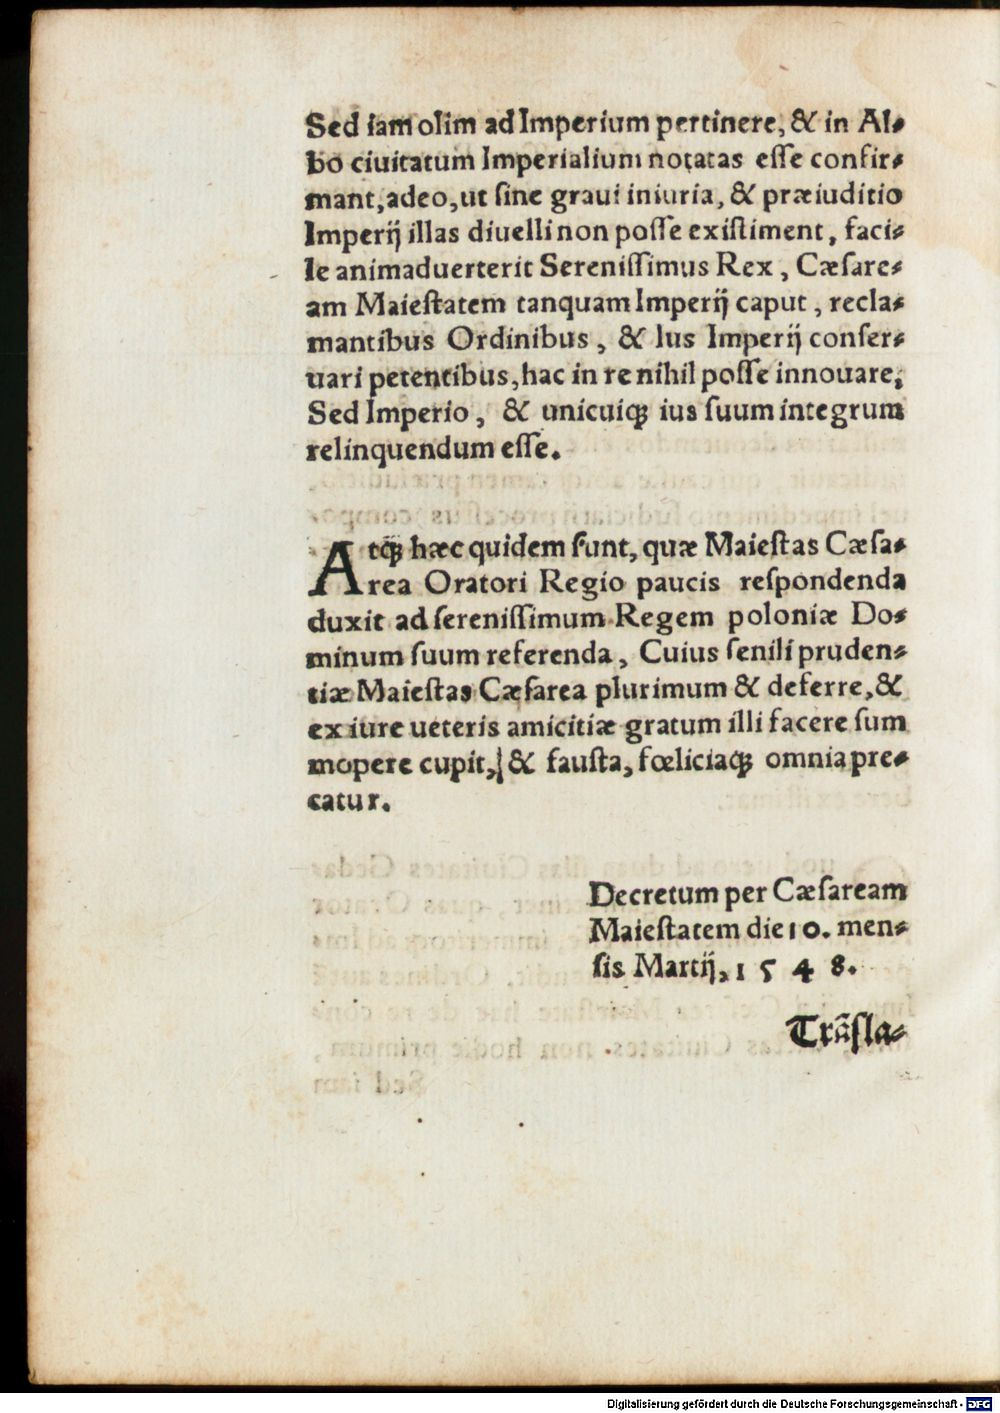 Sed iam olim ad Imperium pertinere, & in Al⸗
bo ciuitatum Imperialium notatas eſſe confir⸗
mant, adeo, ut ſine graui iniuria, & præiuditio
Imperij illas diuelli non poſſe exiſtiment, faci⸗
le animaduerterit Sereniſſimus Rex, Cæſare⸗
am Maieſtatem tanquam Imperij caput, recla⸗
mantibus Ordinibus, & Ius Imperij conſer⸗
uari petentibus, hac in re nihil poſſe innouare,
Sed Imperio, & unicuiqꝫ ius ſuum integrum
relinquendum eſſe.
Atqꝫ hæc quidem ſunt, quæ Maieſtas Cæſa⸗
rea Oratori Regio paucis reſpondenda
duxit ad ſereniſſimum Regem poloniæ Do⸗
minum ſuum referenda, Cuius ſenili pruden⸗
tiæ Maieſtas Cæſarea plurimum & deferre, &
ex iure ueteris amicitiæ gratum illi facere ſum
mopere cupit, & fauſta, fœliciaqꝫ omnia pre⸗
catur.
Decretum per Cæſaream
Maieſtatem die 10. men⸗
ſis Martij, 1548.
Trãſla⸗
Digitalisierung gefördert durch die Deutsche Forschungsgemeinschaft - DFG